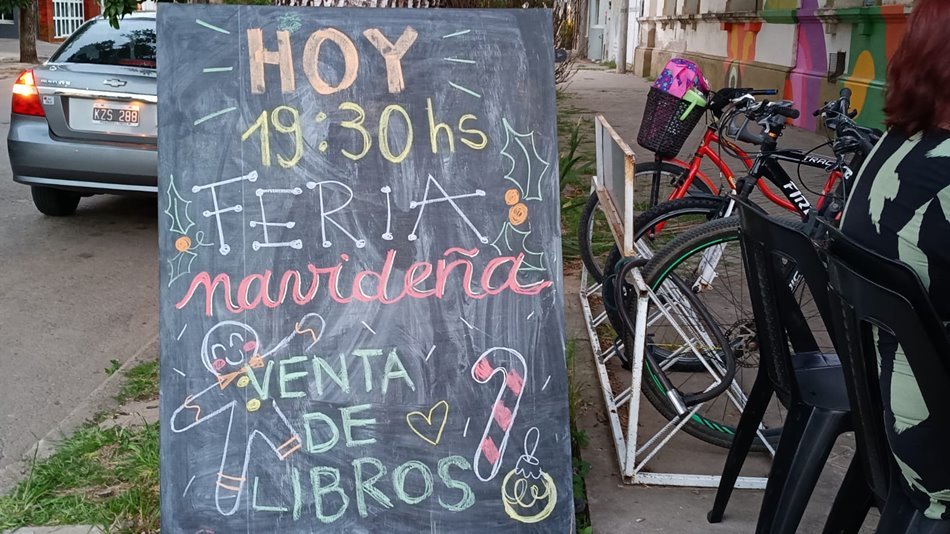 HOY
19:30 hs
FERIA
navideña
VENTA
DE
LIBROS
KZS 288